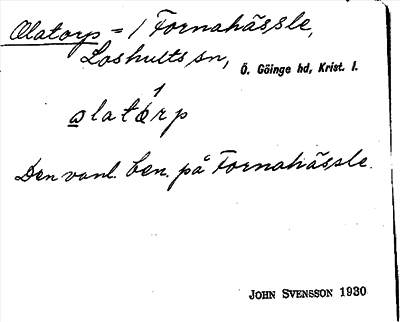 Olatorp = 1 Fornahässle,
Loshults sn, Ö. Göinge hd, Krist. l.
1
olatórp
Den vanl. ben. på Fornahässle.
JOHN SVENSSON 1930